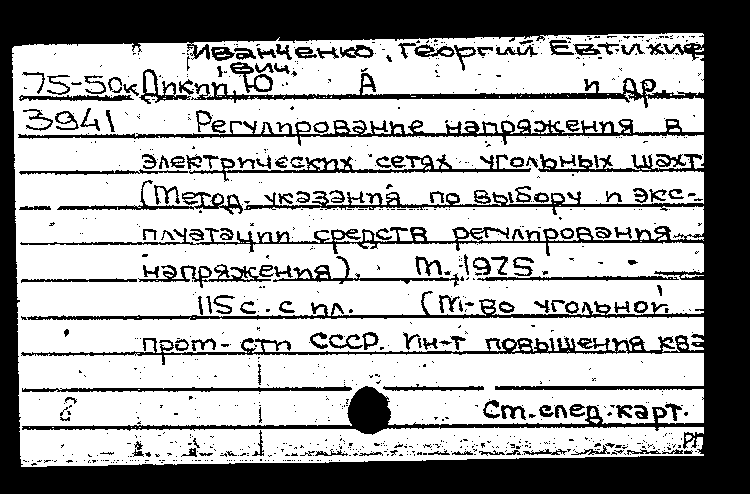 Иванченко, Георгий Евтихие
вич,
75-50к Дикий, Ю А и др.
3941 Регулирование напряжения в
электрических сетях угольных шахт.
(Метод. указания по выбору и экс-
плуатации средств регулирования
напряжения). М., 1975.
115 с. с ил. (М-во угольной
пром-сти СССР. Ин-т повышения ква
8 См. след. карт.
РП